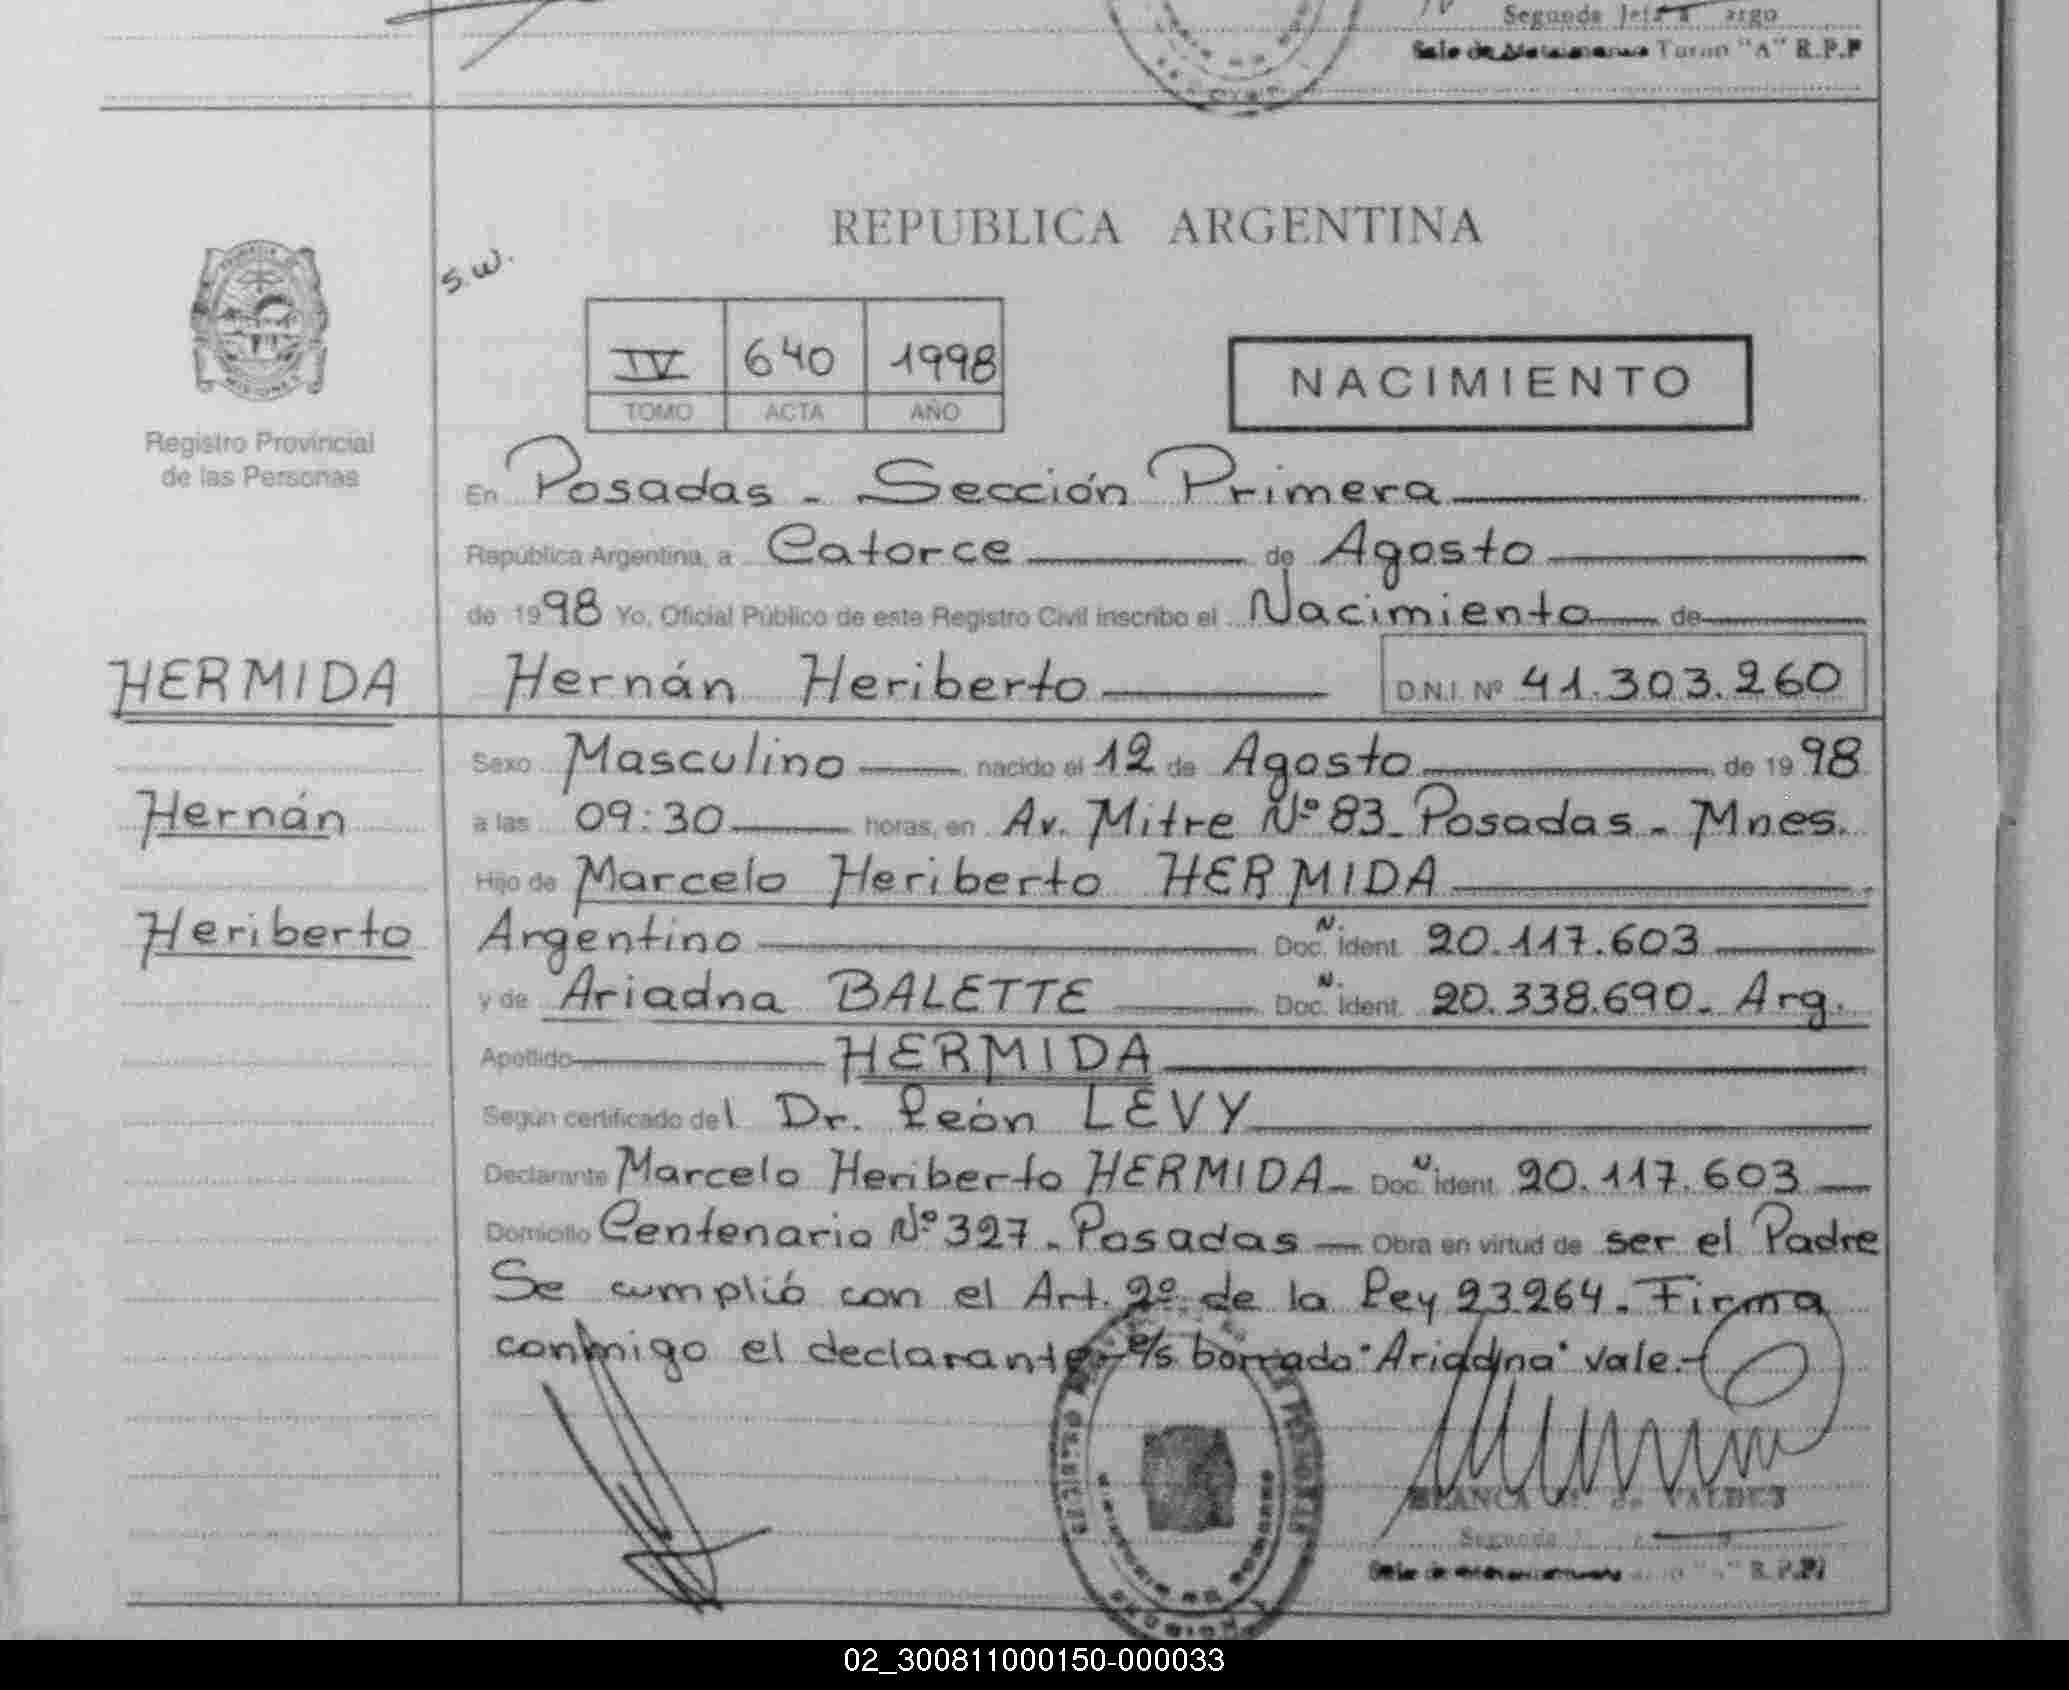 Segundo Jefe a argo
Sala de Turno "A" R.P.P
REPUBLICA ARGENTINA
S.W.
IV 640 1998
TOMO ACTA AÑO
NACIMIENTO
MISIONES
Registro Provincial
de las Personas
En Posadas - Sección Primera
Republica Argentina, a Catorce de Agosto
de 1998 Yo, Oficial Público de este Registro Civil inscribo el Nacimiento de
HERMIDA Hernán Heriberto D.N.I. Nº 41.303.260
Sexo Masculino nacido el 12 de Agosto de 1998
Hernán a las 09:30 horas, en Av. Mitre Nº 83 - Posadas - Mnes.
Hijo de Marcelo Heriberto HERMIDA
Heriberto Argentino Doc. Ident. 20.117.603
y de Ariadna BALETTE Doc. Ident. 20.338.690 - Arg.
Apellido HERMIDA
Según certificado del Dr. León LEVY
Declarante Marcelo Heriberto HERMIDA - Doc. Ident. 20.117.603
Domicilio Centenario Nº 327 - Posadas - Obra en virtud de ser el Padre
Se cumplió con el Art. 2º de la Ley 23264. Firma
conmigo el declarante e/s borrado "Ariadna" vale.-
BLANCA de VALDES
Segundo
R.P.P.
02_300811000150-000033